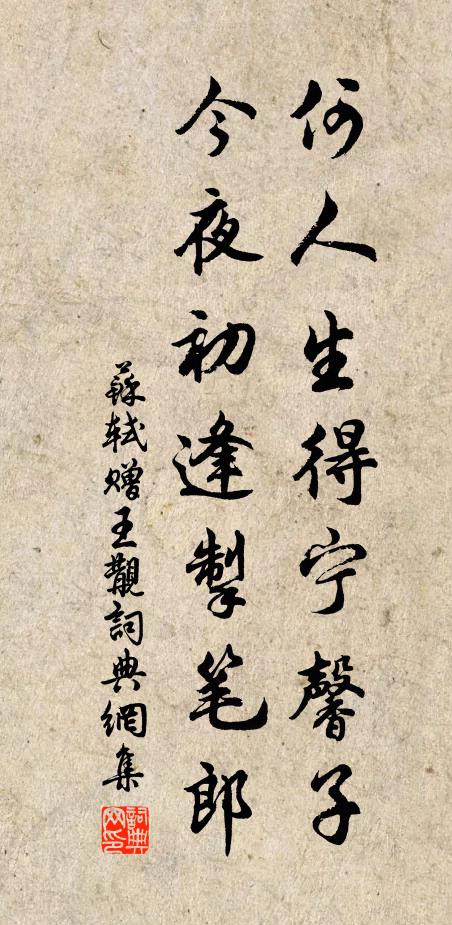 何人生得宁馨子
今夜初逢掣笔郎
蘇軾赠王觀詞典網集
詞典网印